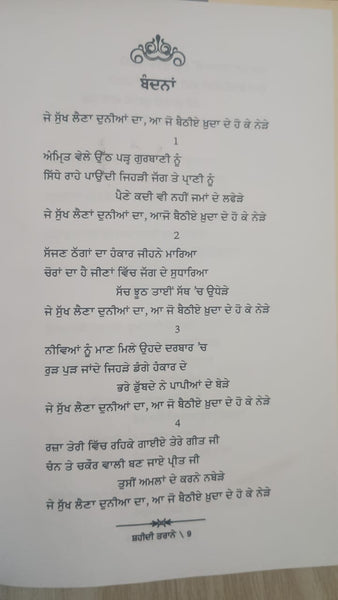 ਬੰਦਨਾਂ
ਜੇ ਸੁੱਖ ਲੈਣਾ ਦੁਨੀਆਂ ਦਾ, ਆ ਜੋ ਬੈਠੀਏ ਖ਼ੁਦਾ ਦੇ ਹੋ ਕੇ ਨੇੜੇ
1
ਅੰਮ੍ਰਿਤ ਵੇਲੇ ਉੱਠ ਪੜ੍ਹ ਗੁਰਬਾਣੀ ਨੂੰ
ਸਿੱਧੇ ਰਾਹੇ ਪਾਉਂਦੀ ਜਿਹੜੀ ਜੱਗ ਤੇ ਪ੍ਰਾਣੀ ਨੂੰ
ਪੈਣੇ ਕਦੀ ਵੀ ਨਹੀਂ ਜਮਾਂ ਦੇ ਲਫੇੜੇ
ਜੇ ਸੁੱਖ ਲੈਣਾਂ ਦੁਨੀਆਂ ਦਾ, ਆਜੋ ਬੈਠੀਏ ਖ਼ੁਦਾ ਦੇ ਹੋ ਕੇ ਨੇੜੇ
2
ਸੱਜਣ ਠੱਗਾਂ ਦਾ ਹੰਕਾਰ ਜੀਹਨੇ ਮਾਰਿਆ
ਚੋਰਾਂ ਦਾ ਹੈ ਜੀਣਾਂ ਵਿੱਚ ਜੱਗ ਦੇ ਸੁਧਾਰਿਆ
ਸੱਚ ਝੂਠ ਤਾਈਂ ਸੱਥ 'ਚ ਉਧੇੜੇ
ਜੇ ਸੁੱਖ ਲੈਣਾ ਦੁਨੀਆਂ ਦਾ, ਆ ਜੋ ਬੈਠੀਏ ਖ਼ੁਦਾ ਦੇ ਹੋ ਕੇ ਨੇੜੇ
3
ਨੀਵਿਆਂ ਨੂੰ ਮਾਣ ਮਿਲੇ ਉਹਦੇ ਦਰਬਾਰ 'ਚ
ਰੁੜ ਪੁੜ ਜਾਂਦੇ ਜਿਹੜੇ ਡੰਗੇ ਹੰਕਾਰ ਦੇ
ਭਰੇ ਡੁੱਬਦੇ ਨੇ ਪਾਪੀਆਂ ਦੇ ਬੇੜੇ
ਜੇ ਸੁੱਖ ਲੈਣਾ ਦੁਨੀਆਂ ਦਾ, ਆ ਜੋ ਬੈਠੀਏ ਖ਼ੁਦਾ ਦੇ ਹੋ ਕੇ ਨੇੜੇ
4
ਰਜ਼ਾ ਤੇਰੀ ਵਿੱਚ ਰਹਿਕੇ ਗਾਈਏ ਤੇਰੇ ਗੀਤ ਜੀ
ਚੰਨ ਤੇ ਚਕੋਰ ਵਾਲੀ ਬਣ ਜਾਏ ਪ੍ਰੀਤ ਜੀ
ਤੁਸੀਂ ਅਮਲਾਂ ਦੇ ਕਰਨੇ ਨਬੇੜੇ
ਜੇ ਸੁੱਖ ਲੈਣਾ ਦੁਨੀਆ ਦਾ, ਆ ਜੋ ਬੈਠੀਏ ਖ਼ੁਦਾ ਦੇ ਹੋ ਕੇ ਨੇੜੇ
ਸ਼ਹੀਦੀ ਤਰਾਨੇ \ 9